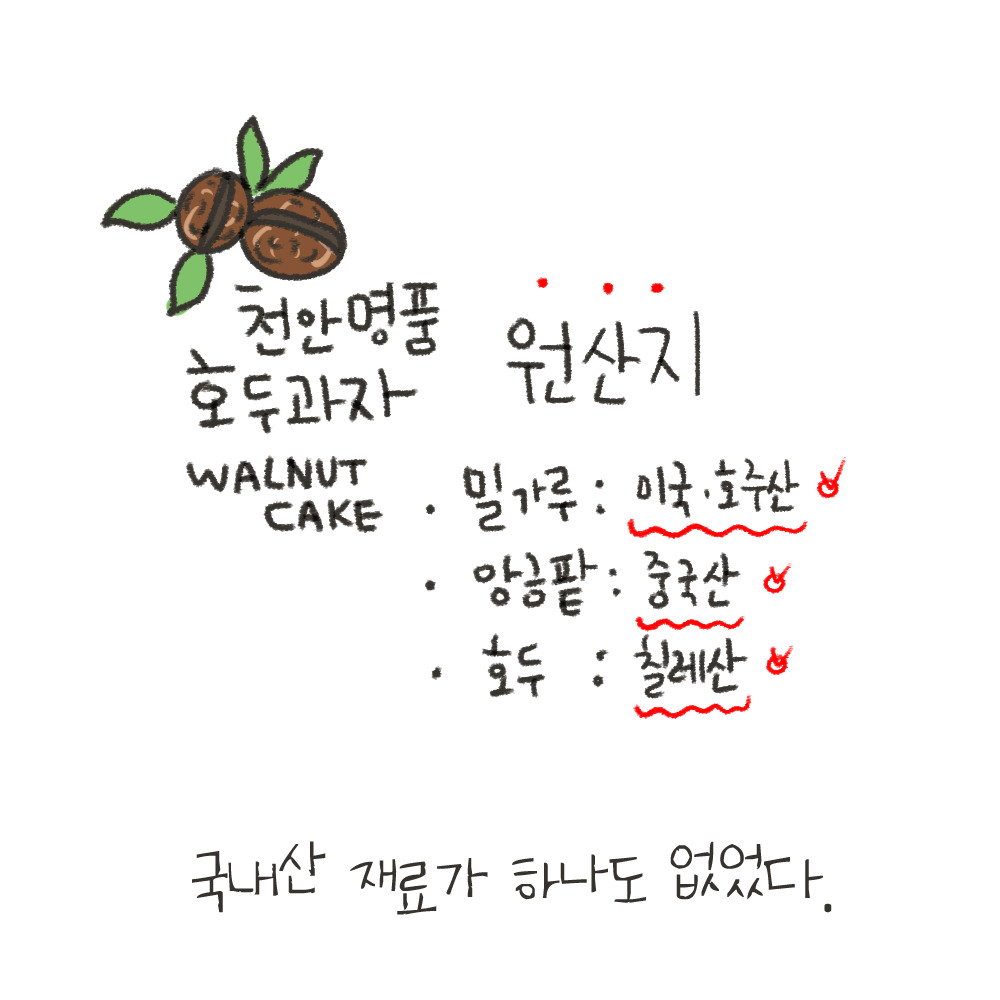 천안명품
호두과자
WALNUT
CAKE
원산지
· 밀가루 : 미국·호주산
· 앙금팥 : 중국산
· 호두 : 칠레산
국내산 재료가 하나도 없었다.